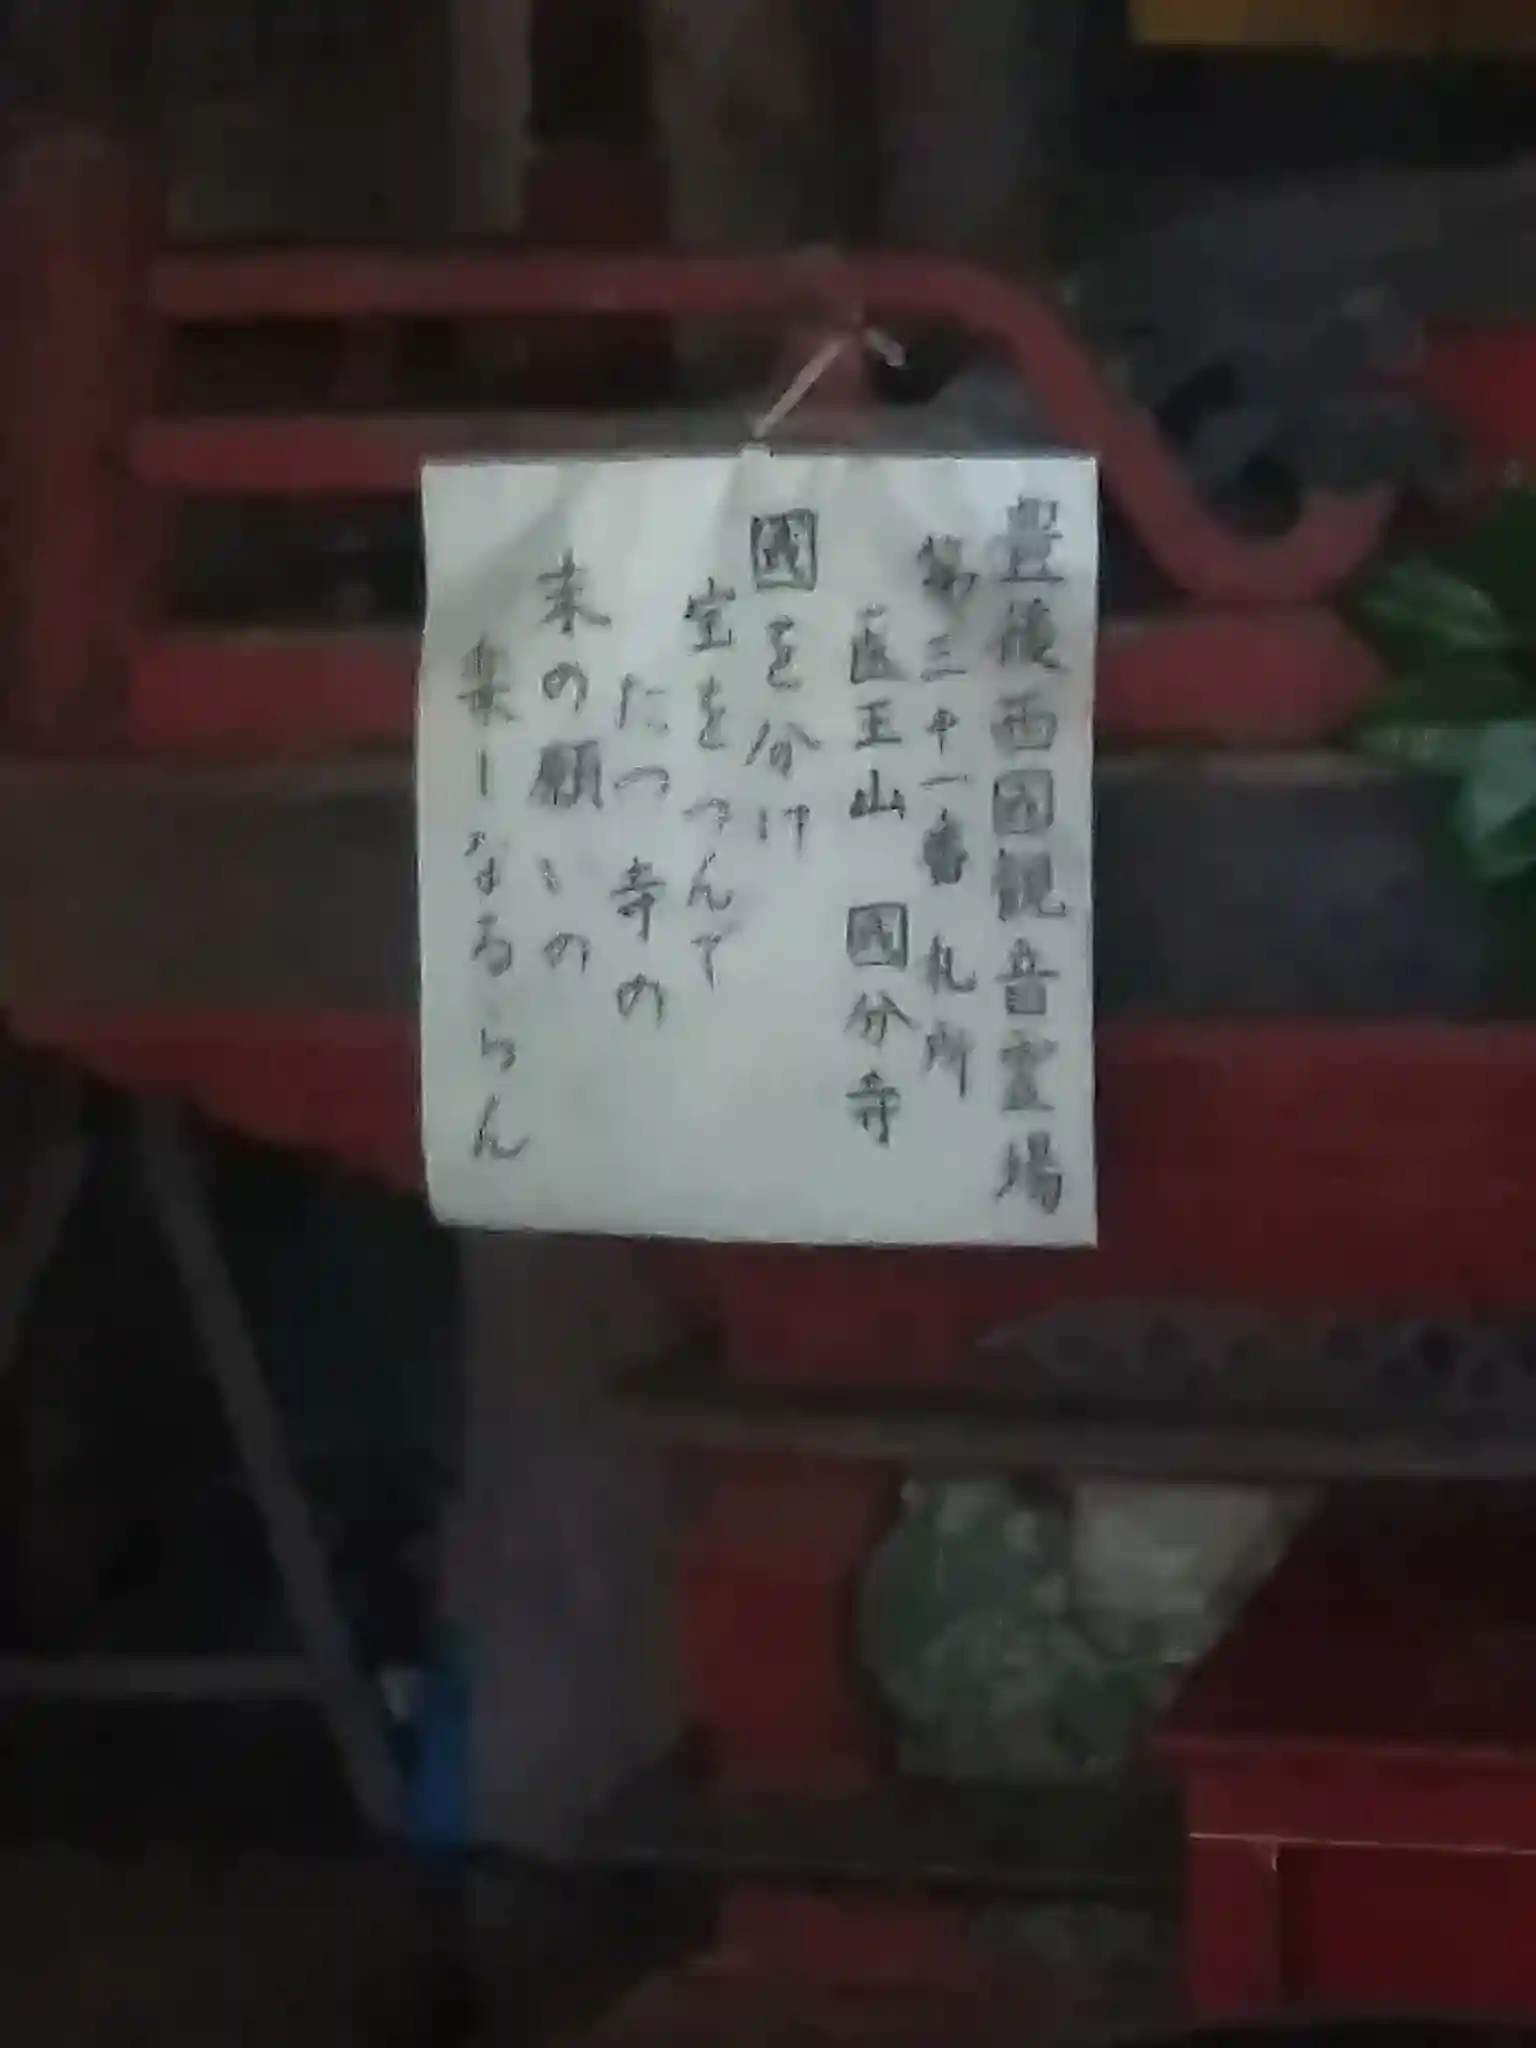 豊後西国観音霊場
第三十一番 札所
医王山 國分寺
國を分け
宝をつんで
たつ寺の
末の願いの
楽しなるらん